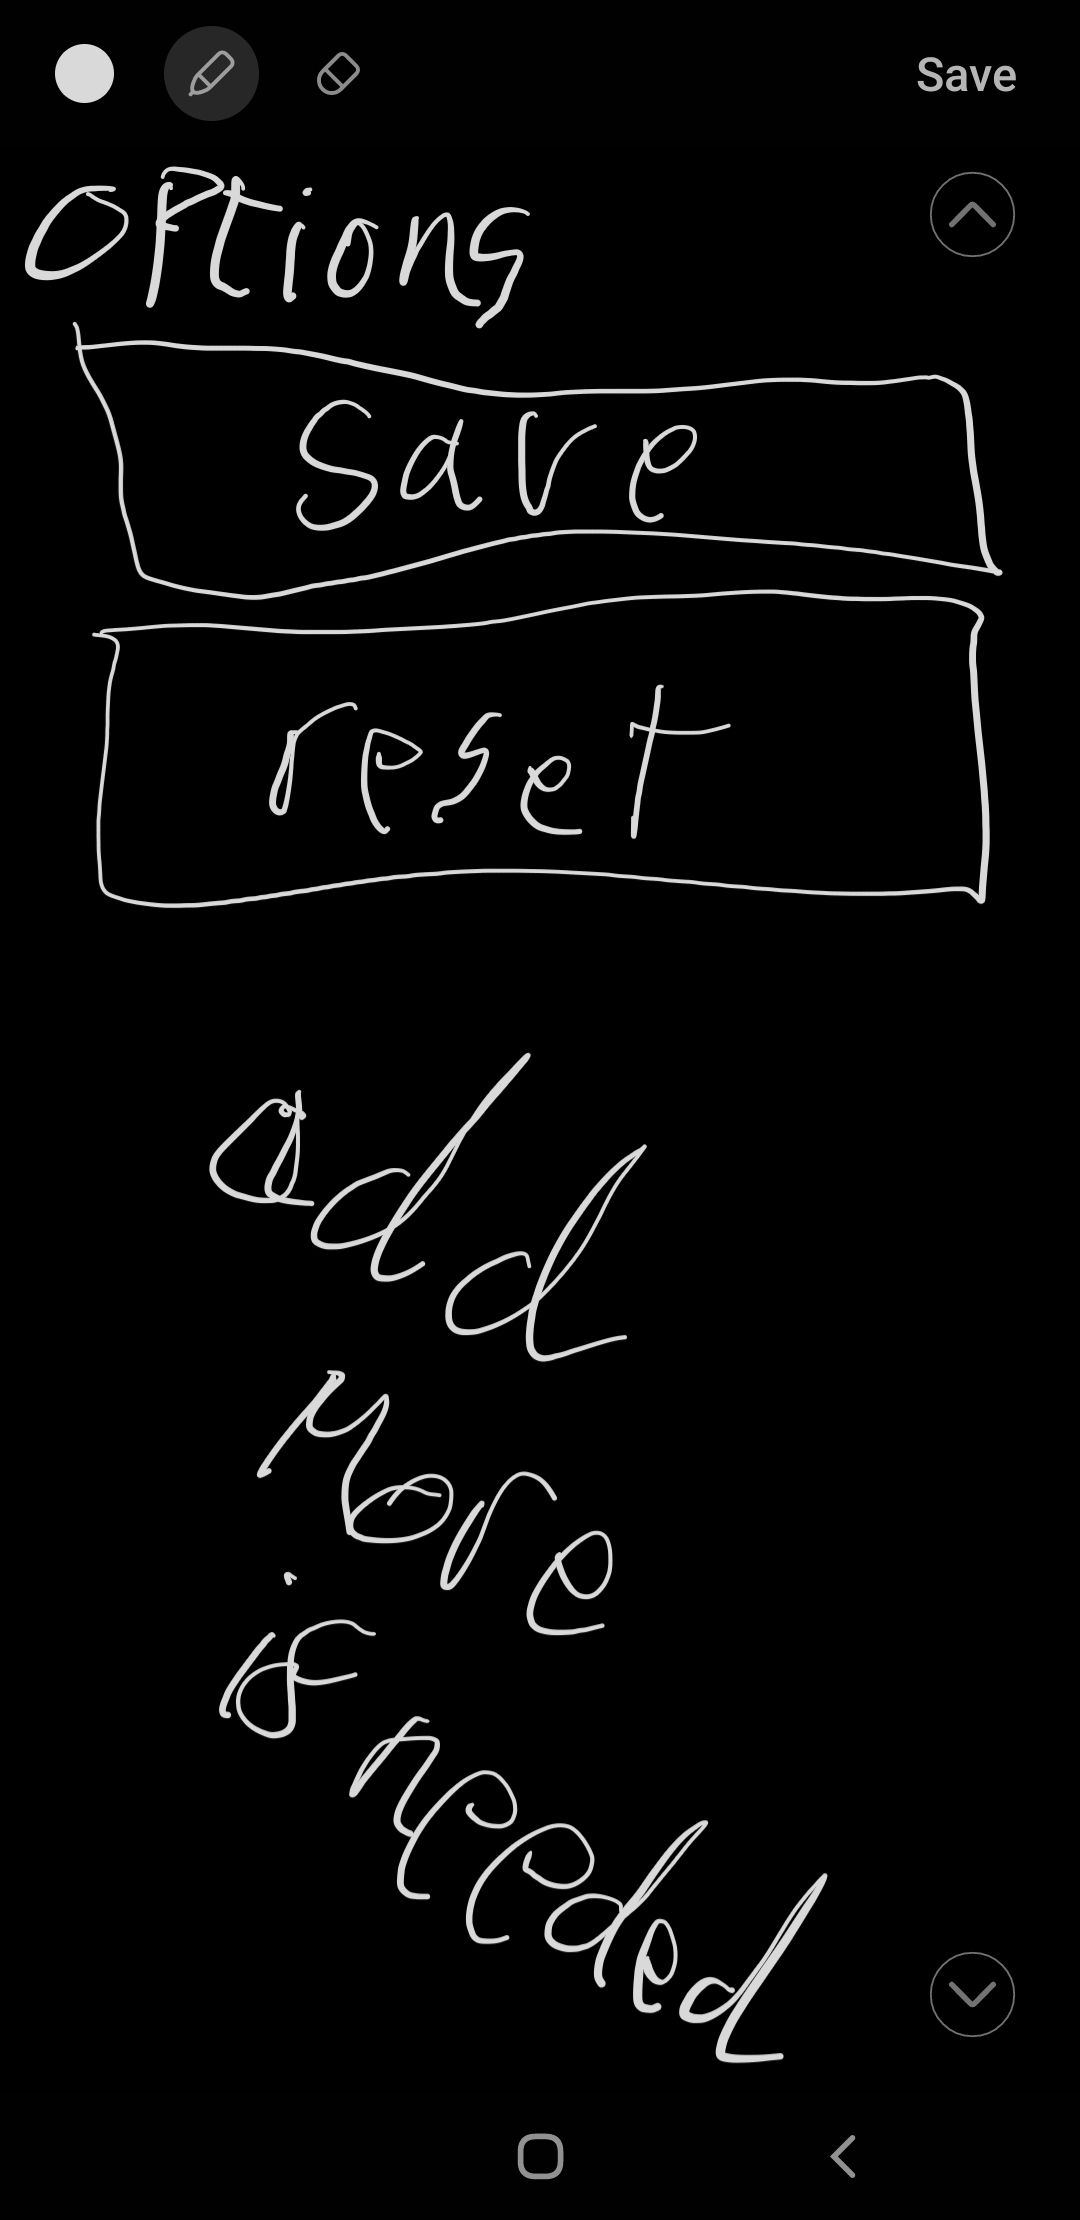 Save
options
Save
reset
add
More
if
needed